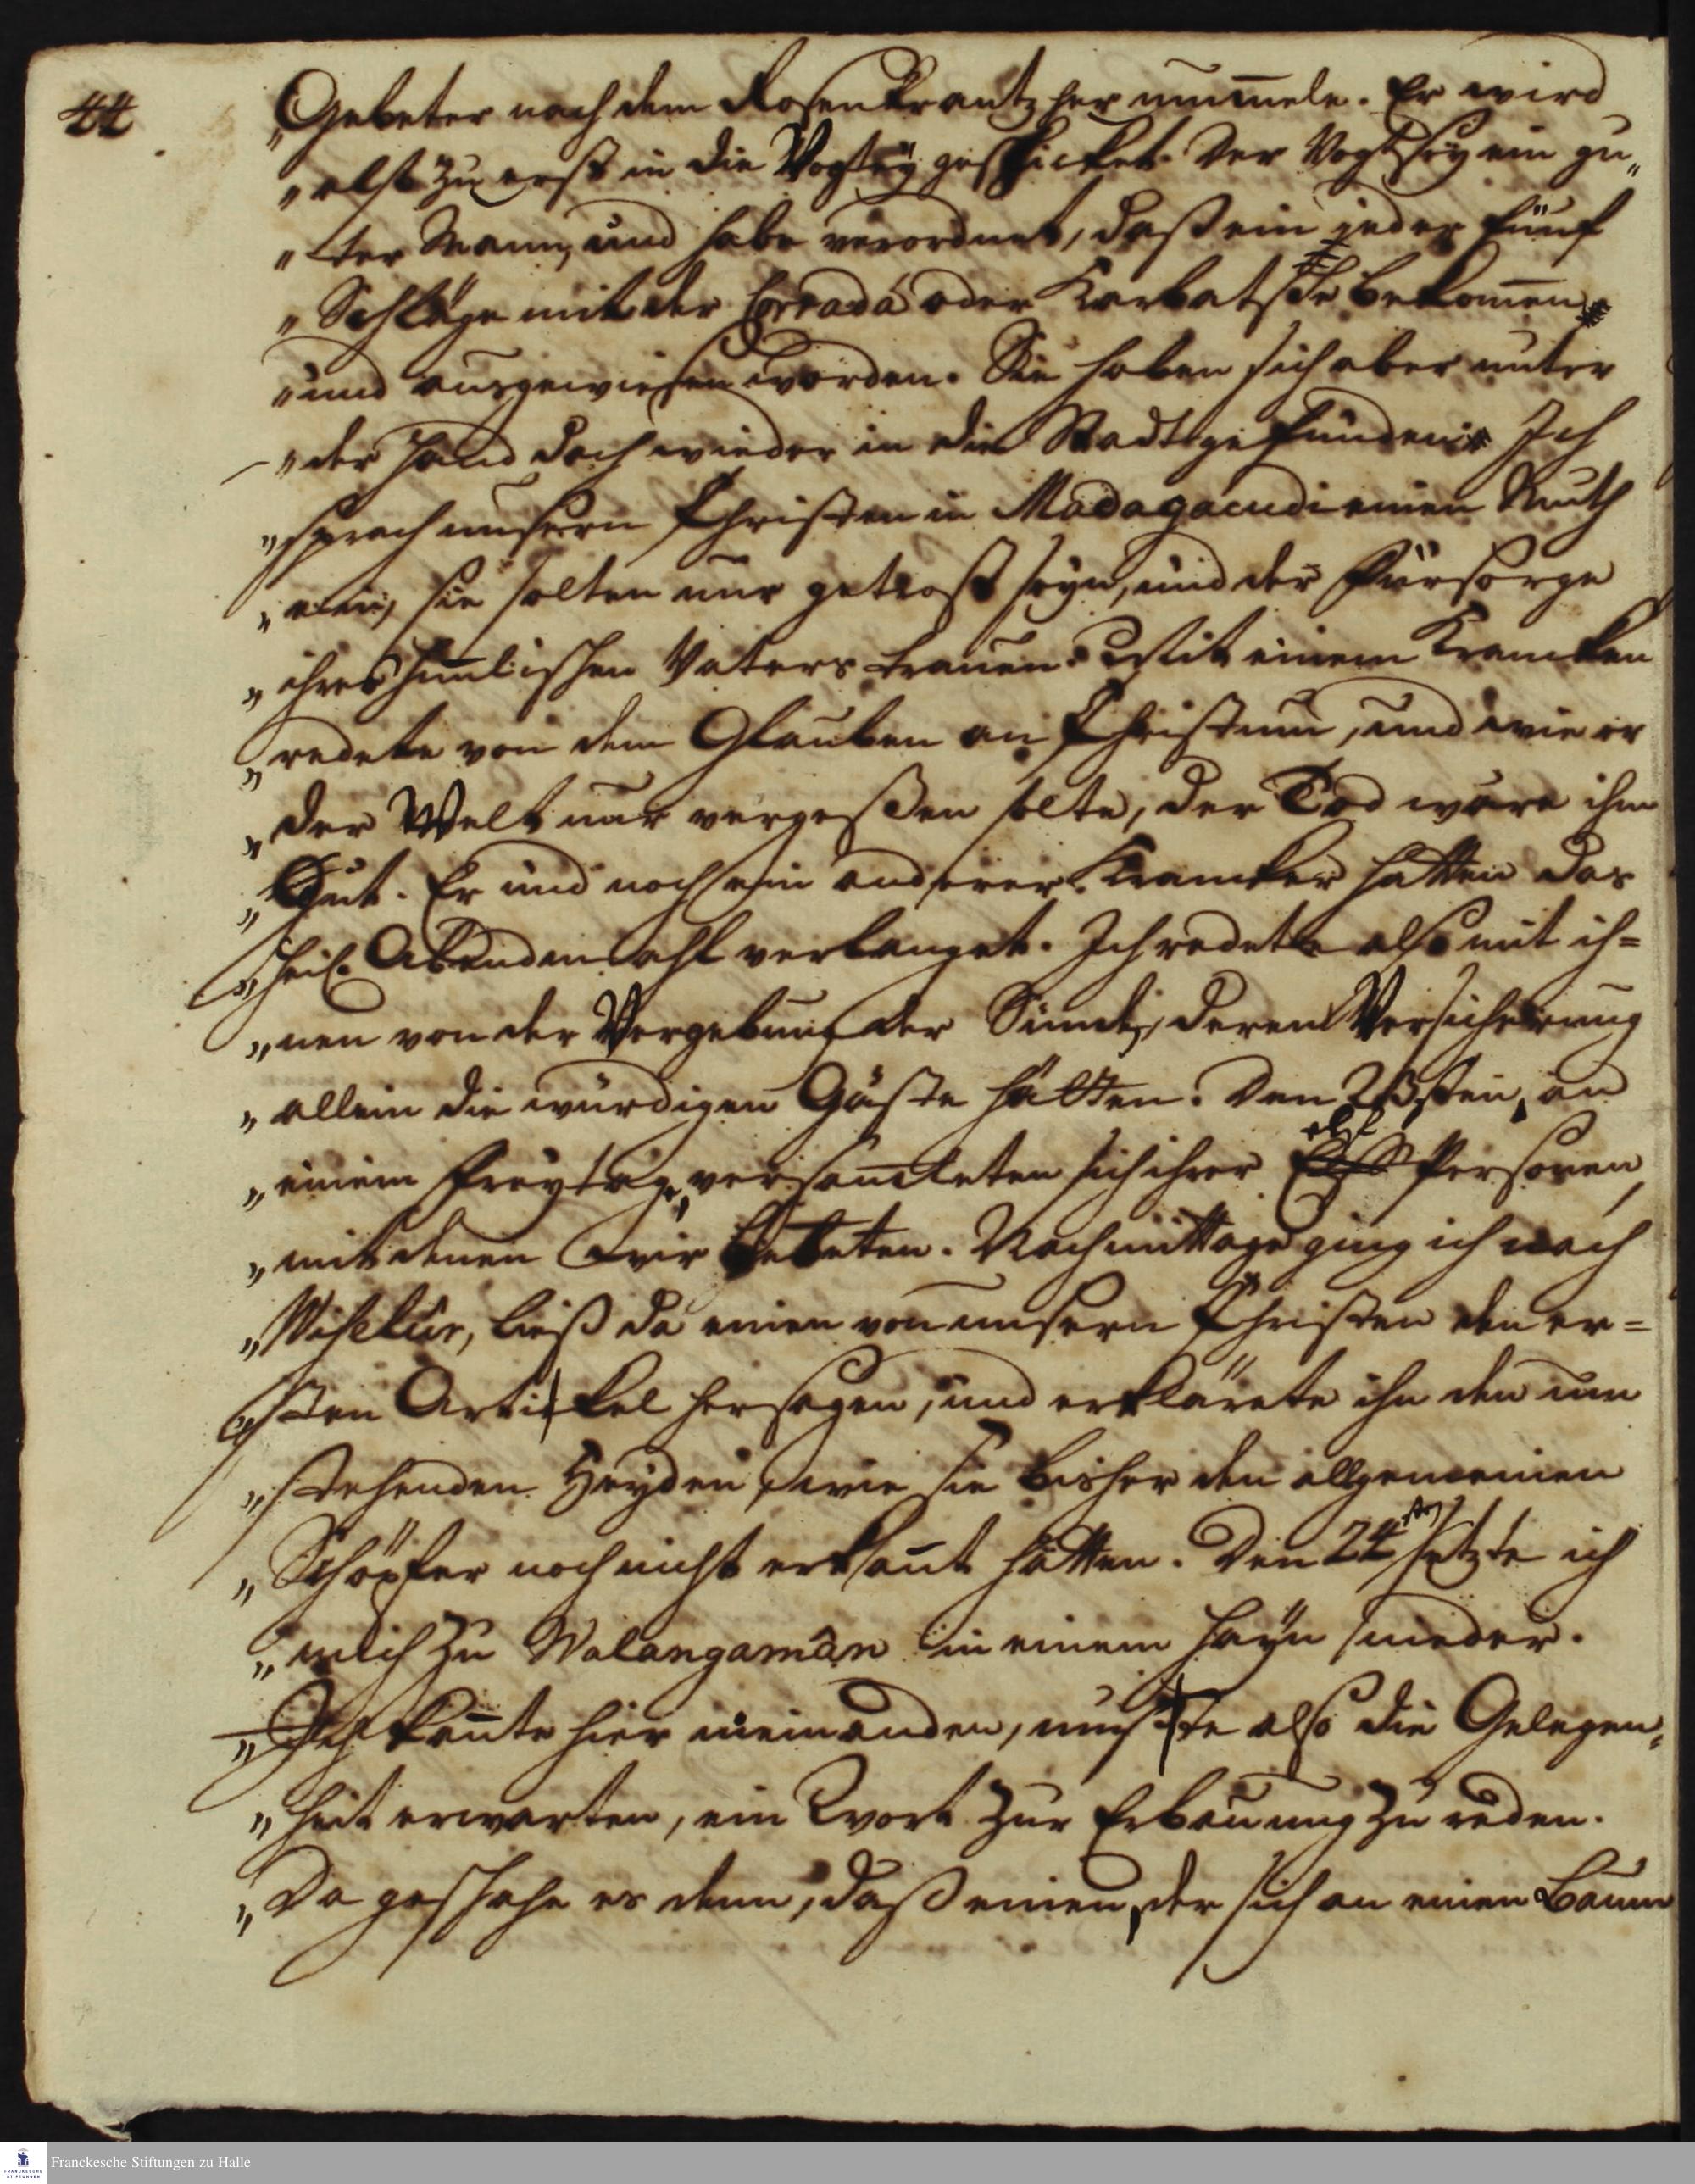 44
„Gebeter nach dem Rosenkrantz her mum̄ele. Er wird
„also zu erst in die Vogtey geschicket. Der Vogt sey ein gu„
„ter Mann, und habe verordnet, daß ein jeder fünf
„Schläge mit der Corrada oder Karbatsche bekom̄en
„und ausgewiesen worden. Sie haben sich aber unter
„der Hand doch wieder in die Stadt gefunden. Ich
„sprach unsern Christen in Madagacudi einen Muth
„ein, sie solten nur getrost seyn, und der Fürsorge
„ihres him̄lischen Vaters trauen. Mit einem Krancken
„redete von dem Glauben an Christum, und wie er
„der Welt nur vergeßen solte, der Tod wäre ihm
„Gut. Er und noch ein anderer Krancker hatten das
„heil. Abendmahl verlanget. Ich redete also mit ih=
„nen von der Vergebung der Sünde, deren Versicherung
„allein die würdigen Gäste hätten. Den 23sten, an
„einem Freytage, versam̄leten sich ihrer eilf Personen,
„mit denen wir beteten. Nachmittage ging ich nach
„Wiselur, ließ da einen von unsern Christen den er=
„sten Artikel hersagen, und erklärete ihn den um
„stehenden Heyden, wie sie bisher den allgemeinen
„Schöpfer noch nicht erkan̄t hätten. Den 24sten setzte ich
„mich zu Walangamân in einem Hayn nieder.
„Ich kan̄te hier niemanden, muste also die Gelegen„
„heit erwarten, ein Wort zur Erbauung zu reden.
„Da geschahe es denn, daß einen, der sich an einen Baum
Franckesche Stiftungen zu Halle
FRANCKESCHE
STIFTUNGEN